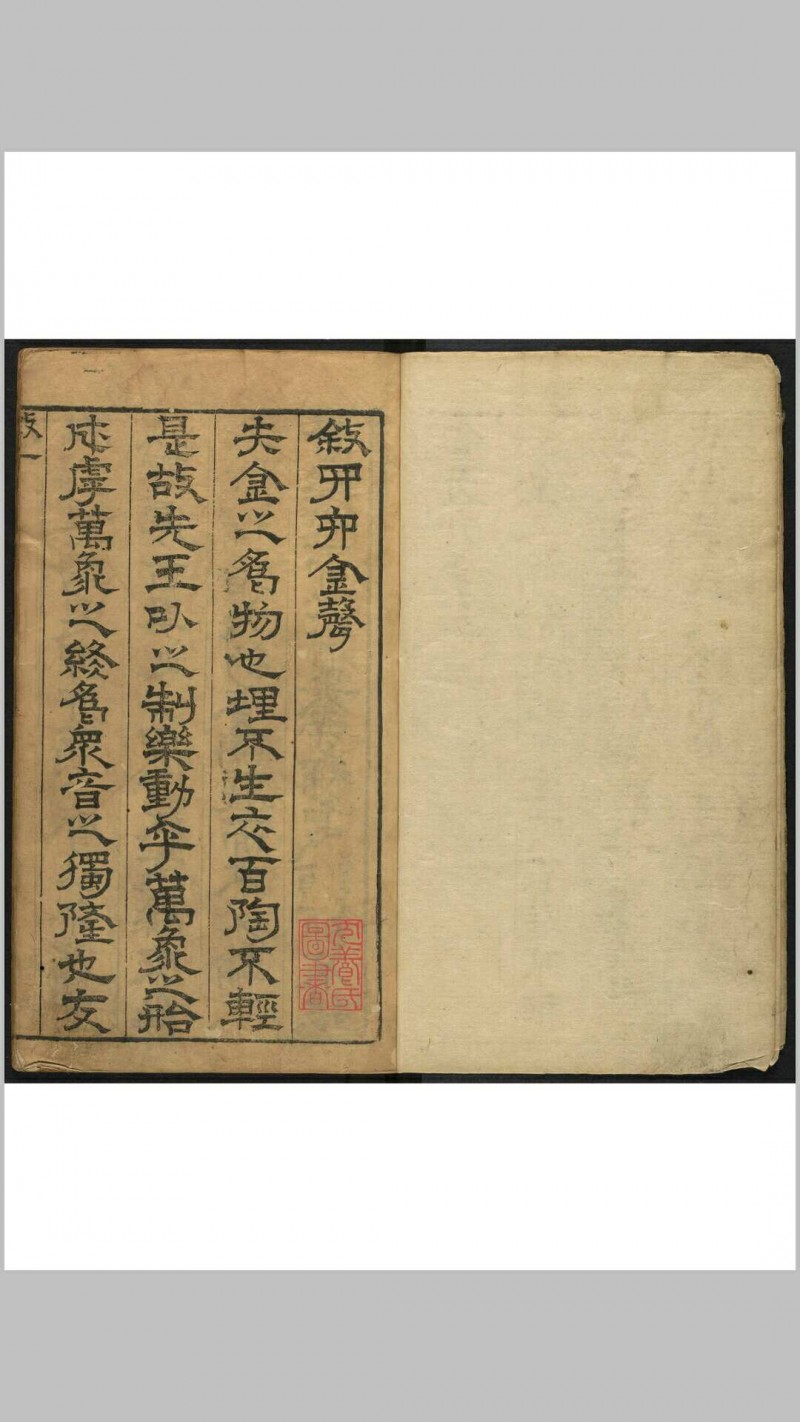 敘丣卯金聲
夫金之爲物也埋不生衣百陶不輕
是故先王㠯之制樂動乎萬象之胎
成虖萬象之終爲衆音之獨隆也友
敘一
養氏
圖書